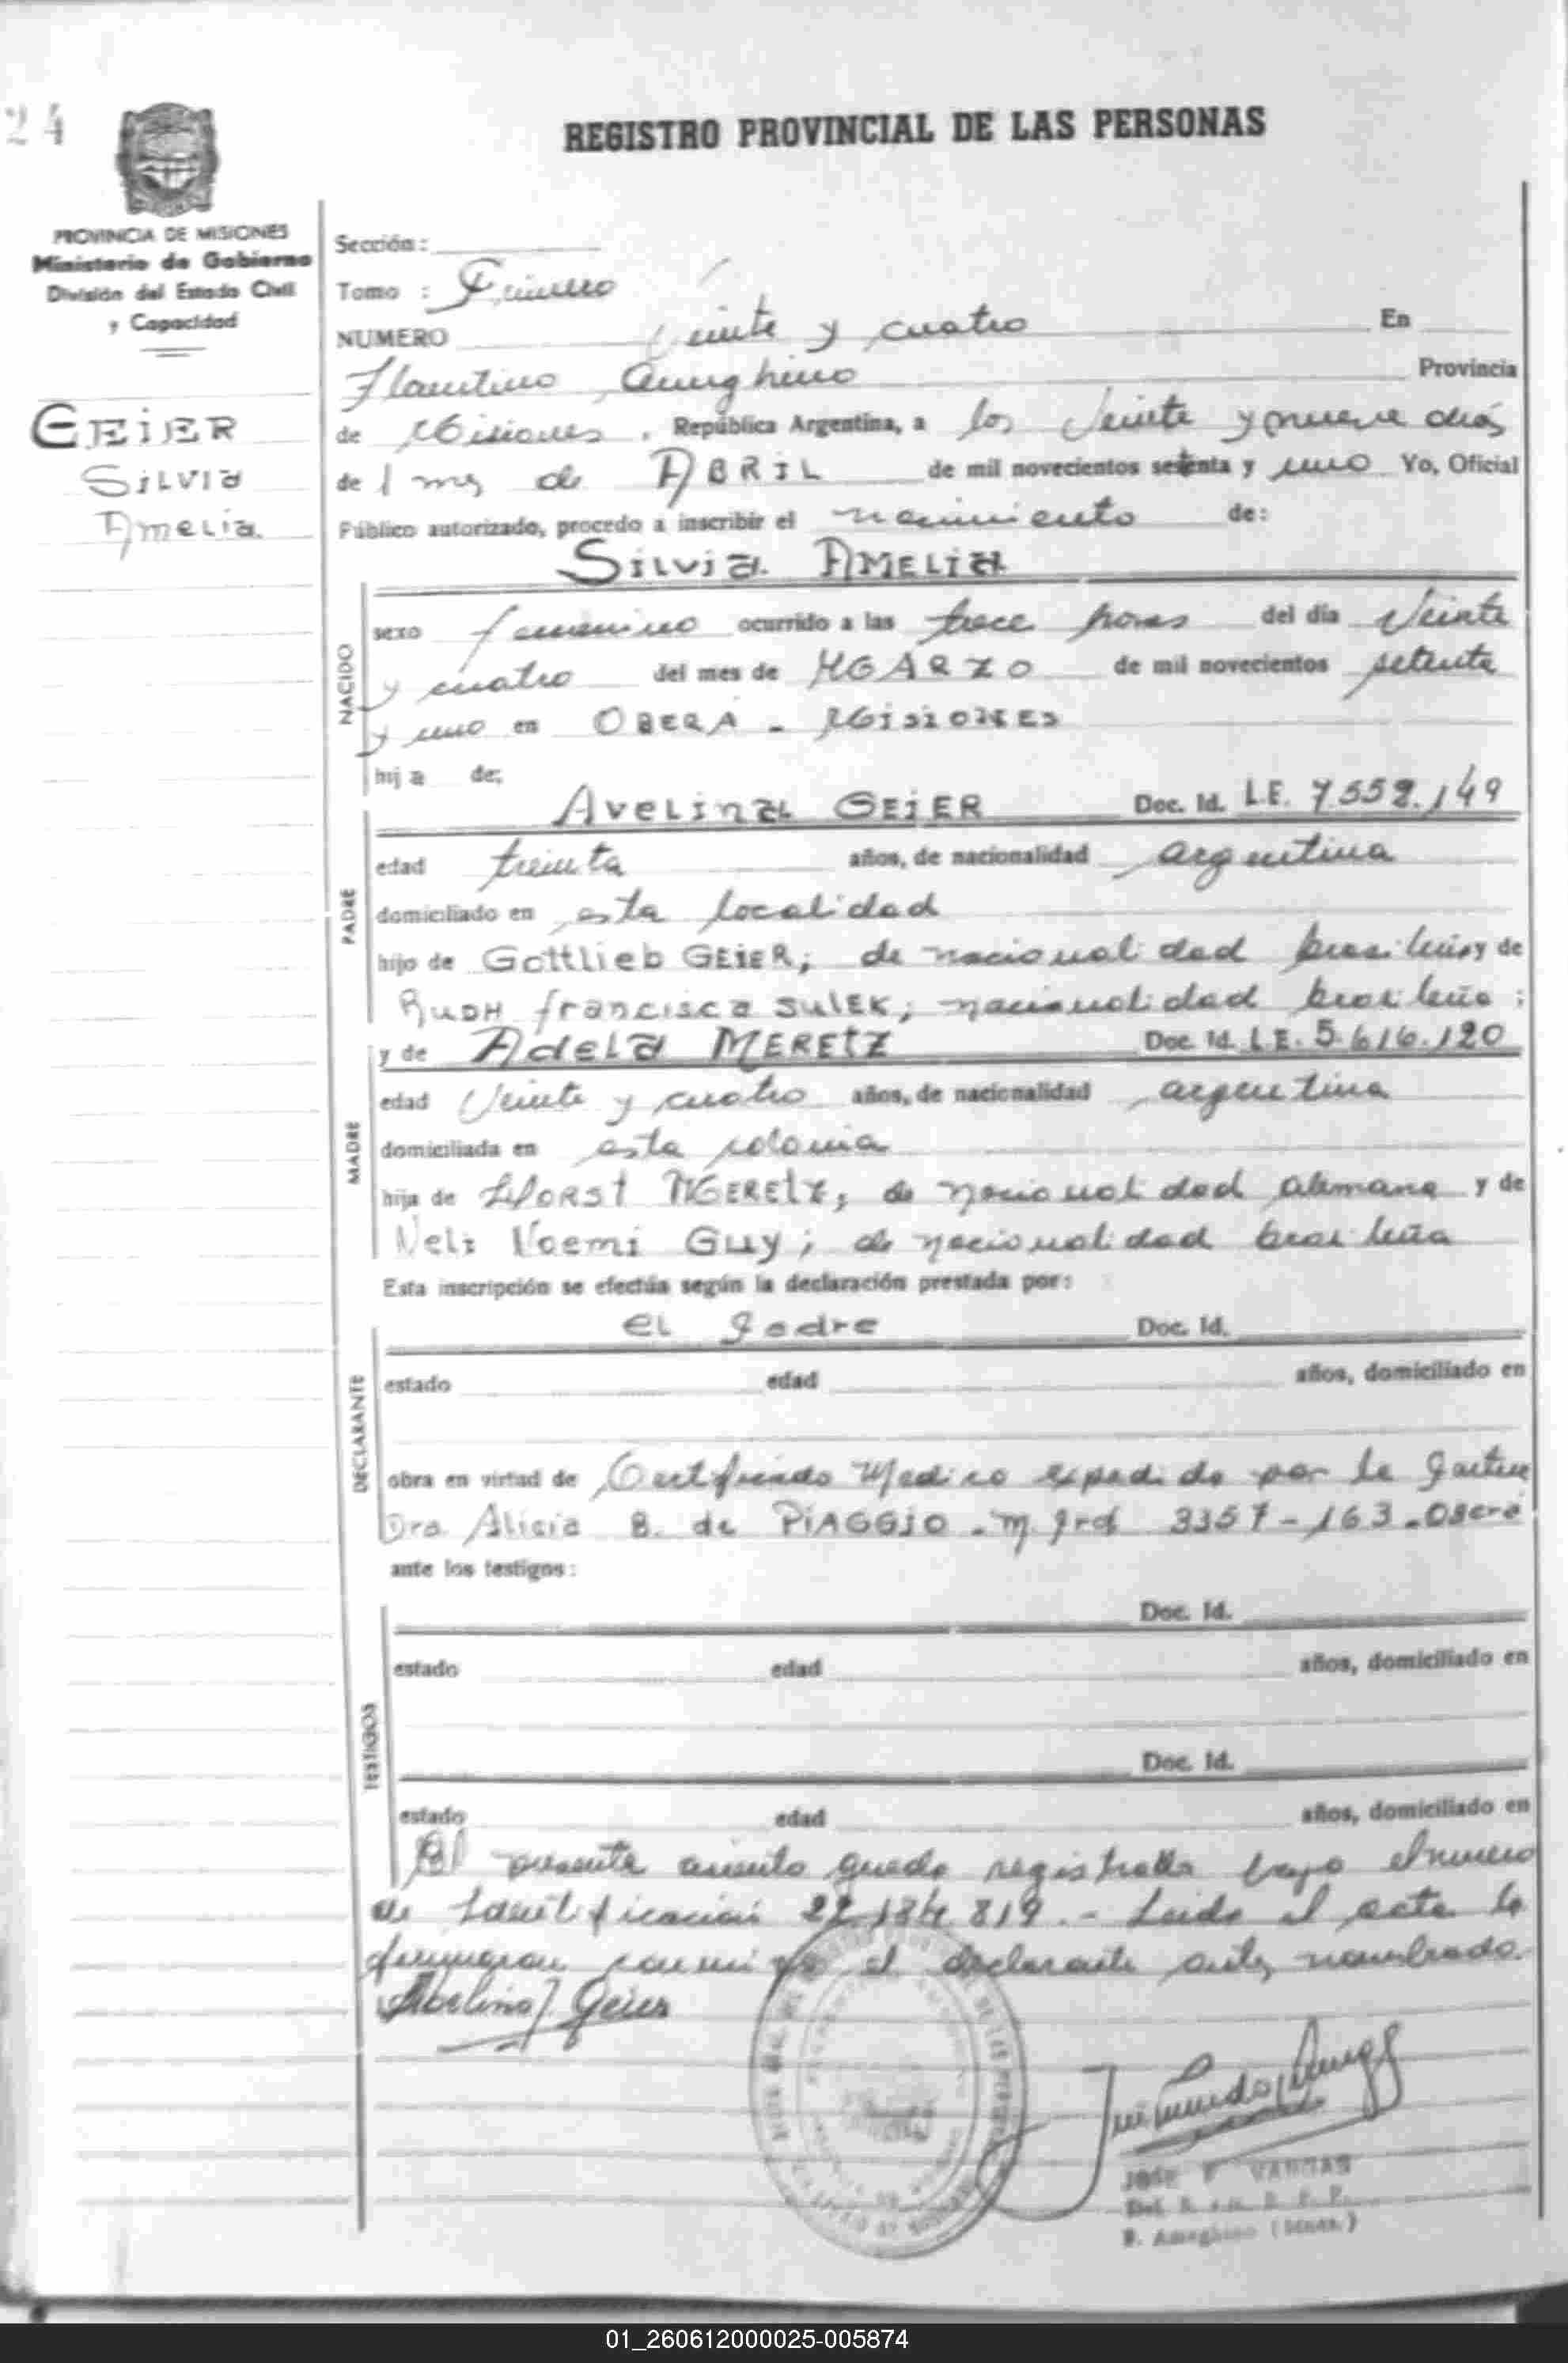 24
REGISTRO PROVINCIAL DE LAS PERSONAS
PROVINCIA DE MISIONES
Ministerio de Gobierno
División del Estado Civil
y Capacidad
GEiER
SiLVIa
Amelia.
Sección:
Tomo : Primero
NUMERO Veinte y cuatro En
Florentino Ameghino Provincia
de Misiones, República Argentina, a los Veinte y nueve días
de l mes de ABRIL de mil novecientos setenta y uno Yo, Oficial
Público autorizado, procedo a inscribir el nacimiento de:
Silvia AMELIA
NACIDO
sexo femenino ocurrido a las trece horas del día Veinte
y cuatro del mes de MARZO de mil novecientos setenta
y uno en OBERA - MISIONES
hija de:
PADRE
Avelino GEiER Doc. Id. L.E. 7.552.149
edad treinta años, de nacionalidad argentina
domiciliado en esta localidad
hijo de Gottlieb GEiER; de nacionalidad y de
francisca SULEK; nacionalidad
MADRE
y de Adela MERETZ Doc. Id. L.E. 5.616.120
edad Veinte y cuatro años, de nacionalidad argentina
domiciliada en esta colonia
hija de Horst MERETZ; de nacionalidad alemana y de
Neli Noemi Guy; de nacionalidad brasileña
Esta inscripción se efectúa según la declaración prestada por:
DECLARANTE
el padre Doc. Id.
estado edad años, domiciliado en
obra en virtud de Certificado Medico expedido por la
Dra. Alicia B. de PiAGGIO - 3357-163 - Obera
ante los testigos:
TESTIGOS
Doc. Id.
estado edad años, domiciliado en
Doc. Id.
estado edad años, domiciliado en
El presente asiento queda registrado bajo el numero
de Identificación 22.184.819.- Leida el acta la
firmaron conmigo el declarante antes nombrado.
Avelino Geier
JOSE F VARGAS
F. Ameghino (Mnes.)
01_260612000025-005874